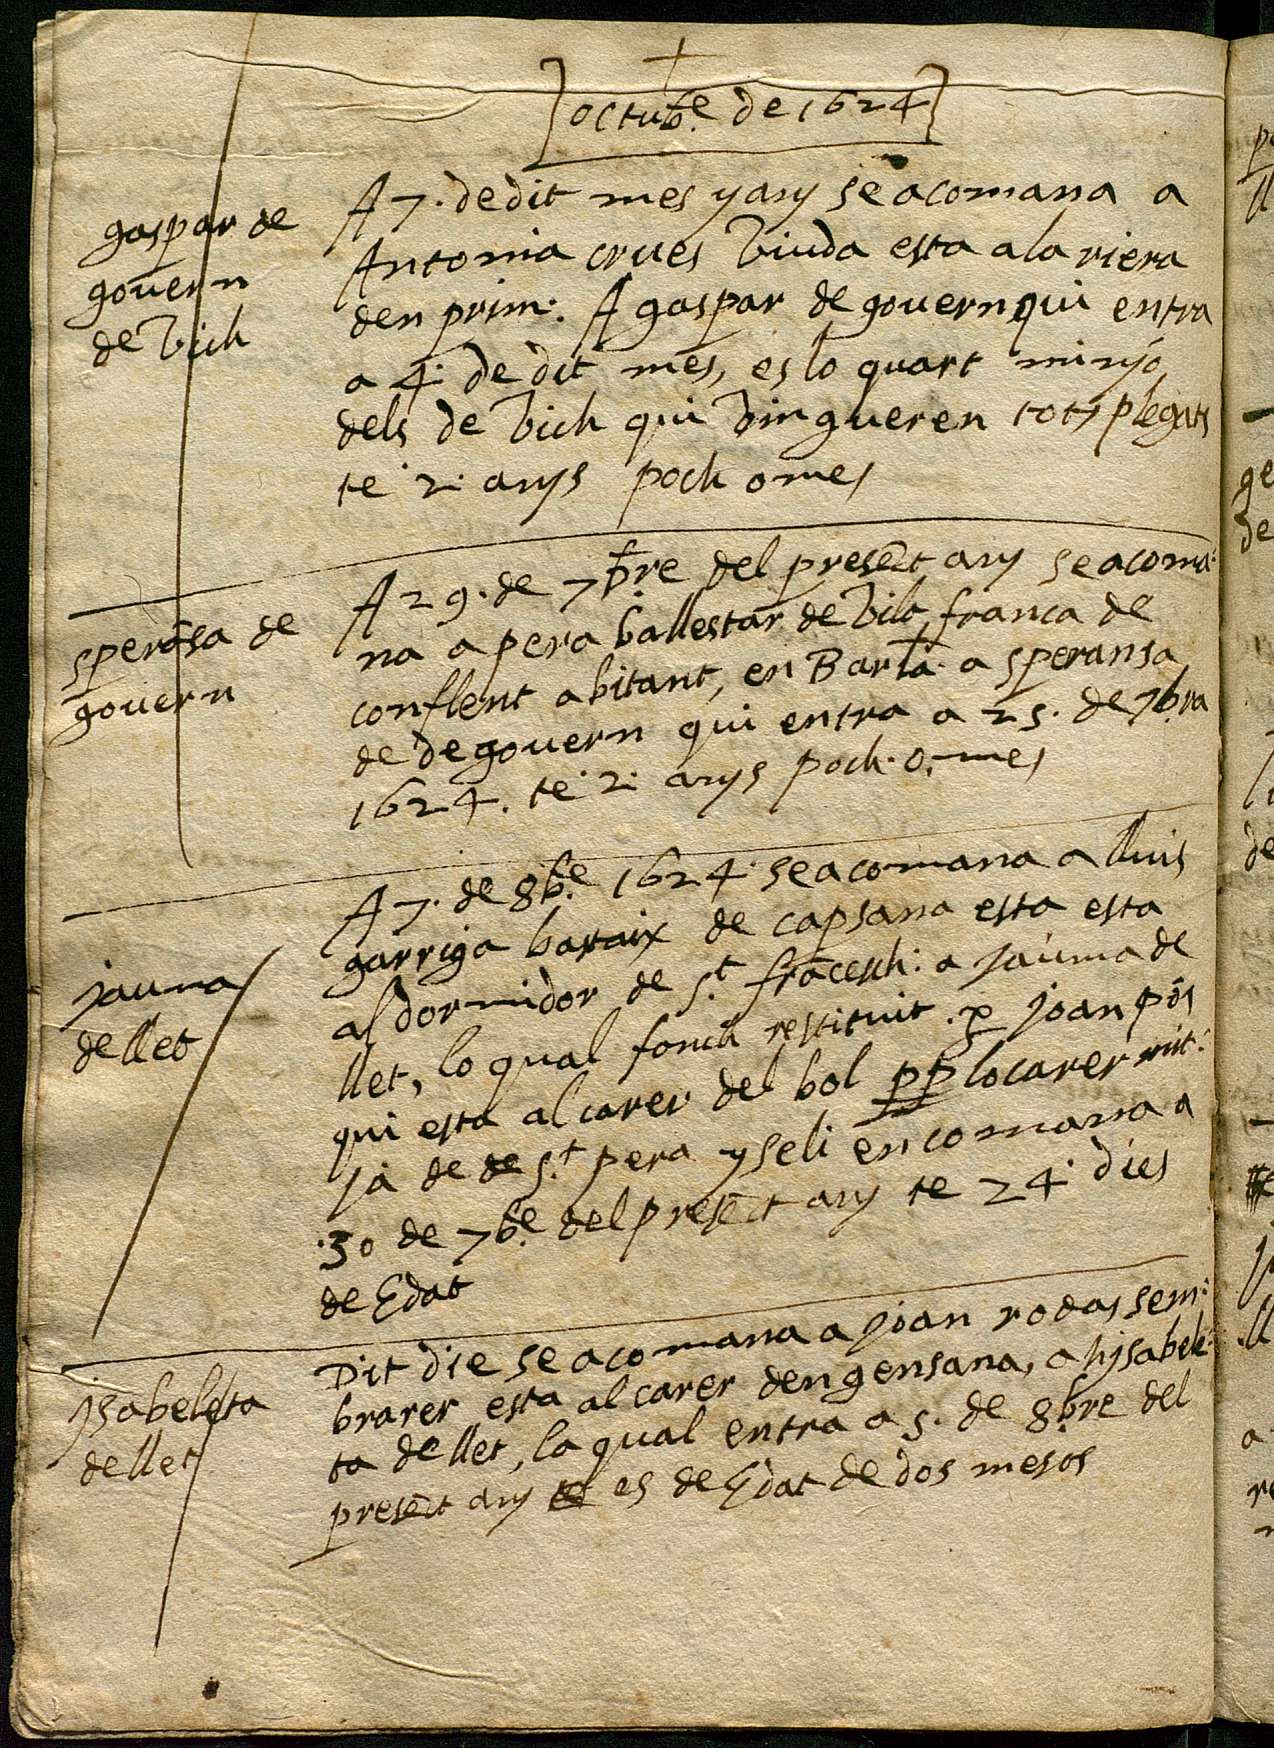 octubᵉ. de 1624
gaspar de
govern
de Vich
A 7. de dit mes y any se acomana a
Antonia crues Viuda esta a la riera
den prim. A gaspar de govern qui entra
a 4. de dit mes, es lo quart minyó
dels de Vich qui vingueren tots plegats
te 2. anys poch o mes
sperāsa de
govern
A 29. de 7bre del presēt any se acoma-
na a pera ballestar de Vila franca de
conflent abitant, en Barlᵃ. a speransa
de de govern qui entra a 25. de 7bra
1624. te 2. anys poch. o. mes
jauma
de llet
A 7. de 8bᵉ. 1624. se acomana a lluis
garriga baraix de capsana esta esta
al dormidor de sᵗ. frācesch. a jauma de
llet, lo qual fonch restituit. p joan pōs
qui esta al carer del bol pp lo carer mit-
ja de de sᵗ pera y se li encomana a
.30 de 7bᵉ. del presēt any te 24. dies
de Edat
jsabeleta
de llet
Dit die se acomana a joan rodas sem-
brarer esta al carer den gensana, a hysabele-
ta de llet, la qual entra a 5. de 8bre del
presēt any es de Edat de dos mesos